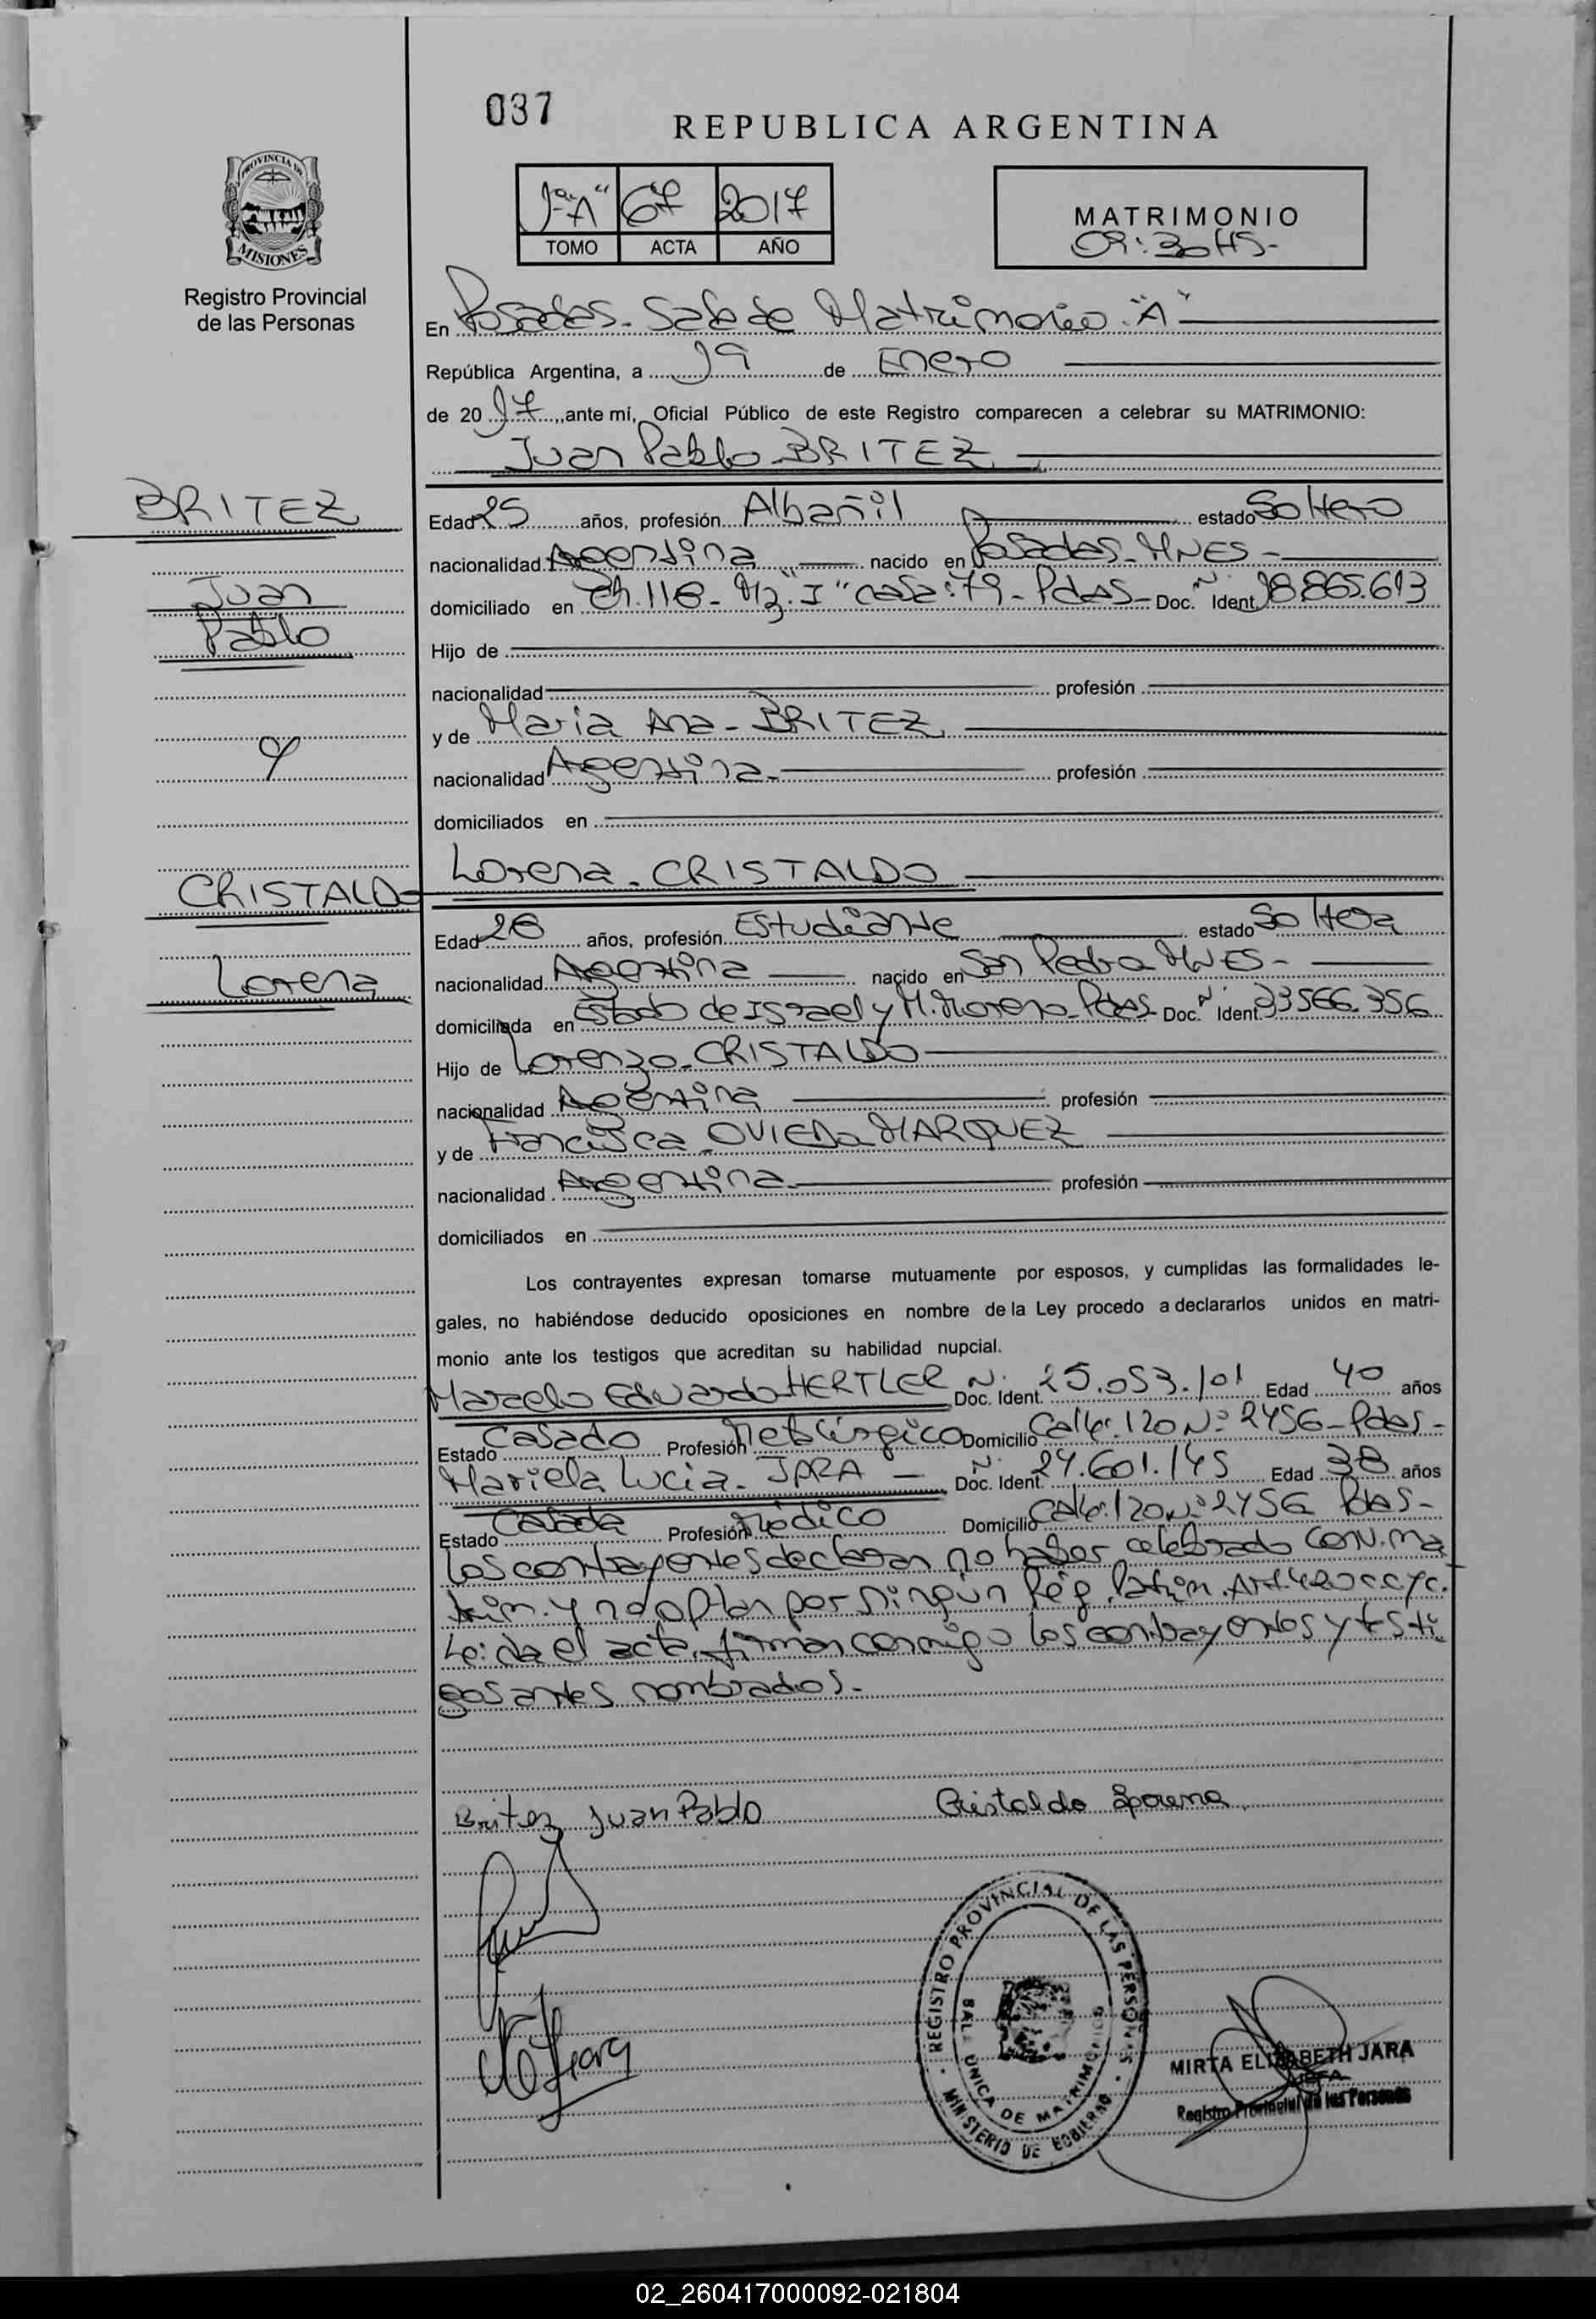 037
REPUBLICA ARGENTINA
1º "A" 67 2017
TOMO ACTA AÑO
MATRIMONIO
09:30 HS-
PROVINCIA DE
MISIONES
Registro Provincial
de las Personas
En Posadas - Sala de Matrimonio "A"
República Argentina, a 19 de Enero
de 20 17, ante mí, Oficial Público de este Registro comparecen a celebrar su MATRIMONIO:
Juan Pablo - BRITEZ
BRITEZ
Juan
Pablo
y
CRISTALDO
Lorena
Edad 25 años, profesión Albañil estado Soltero
nacionalidad Argentina nacido en Posadas - MNES -
domiciliado en Ch. 116 - Mz. "I" casa: 79 - Pdas - Doc. Nº Ident 38.865.613
Hijo de
nacionalidad profesión
y de Maria Ana - BRITEZ
nacionalidad Argentina - profesión
domiciliados en
Lorena - CRISTALDO
Edad 28 años, profesión Estudiante estado Soltera
nacionalidad Argentina nacido en San Pedro MNES -
domiciliada en Estado de Israel y M. Moreno - Pdas - Doc. Nº Ident. 33566.356
Hijo de Lorenzo - CRISTALDO
nacionalidad Argentina profesión
y de Francisca - OVIEDO MARQUEZ
nacionalidad Argentina - profesión
domiciliados en
Los contrayentes expresan tomarse mutuamente por esposos, y cumplidas las formalidades le-
gales, no habiéndose deducido oposiciones en nombre de la Ley procedo a declararlos unidos en matri-
monio ante los testigos que acreditan su habilidad nupcial.
Marcelo Eduardo HERTLER Doc. Nº Ident. 25.053.101 Edad 40 años
Estado Casado Profesión Metalúrgico Domicilio Calle: 120 Nº 2456 - Pdas -
Mariela Lucia - JARA - Doc. Nº Ident. 24.601.145 Edad 38 años
Estado Casada Profesión Médico Domicilio Calle: 120 Nº 2456 Pdas -
Los contrayentes declaran no haber celebrado conv. ma
trim. y no optan por ningún Rég. Patrim. Art. 420 C.C.yC.
Leida el acta, firman conmigo los contrayentes y testi
gos antes nombrados -
Britez Juan Pablo Cristaldo Lorena
REGISTRO PROVINCIAL DE LAS PERSONAS
SALA ÚNICA DE MATRIMONIOS
MINISTERIO DE GOBIERNO
MIRTA ELIZABETH JARA
JEFA
Registro Provincial de las Personas
02_260417000092-021804